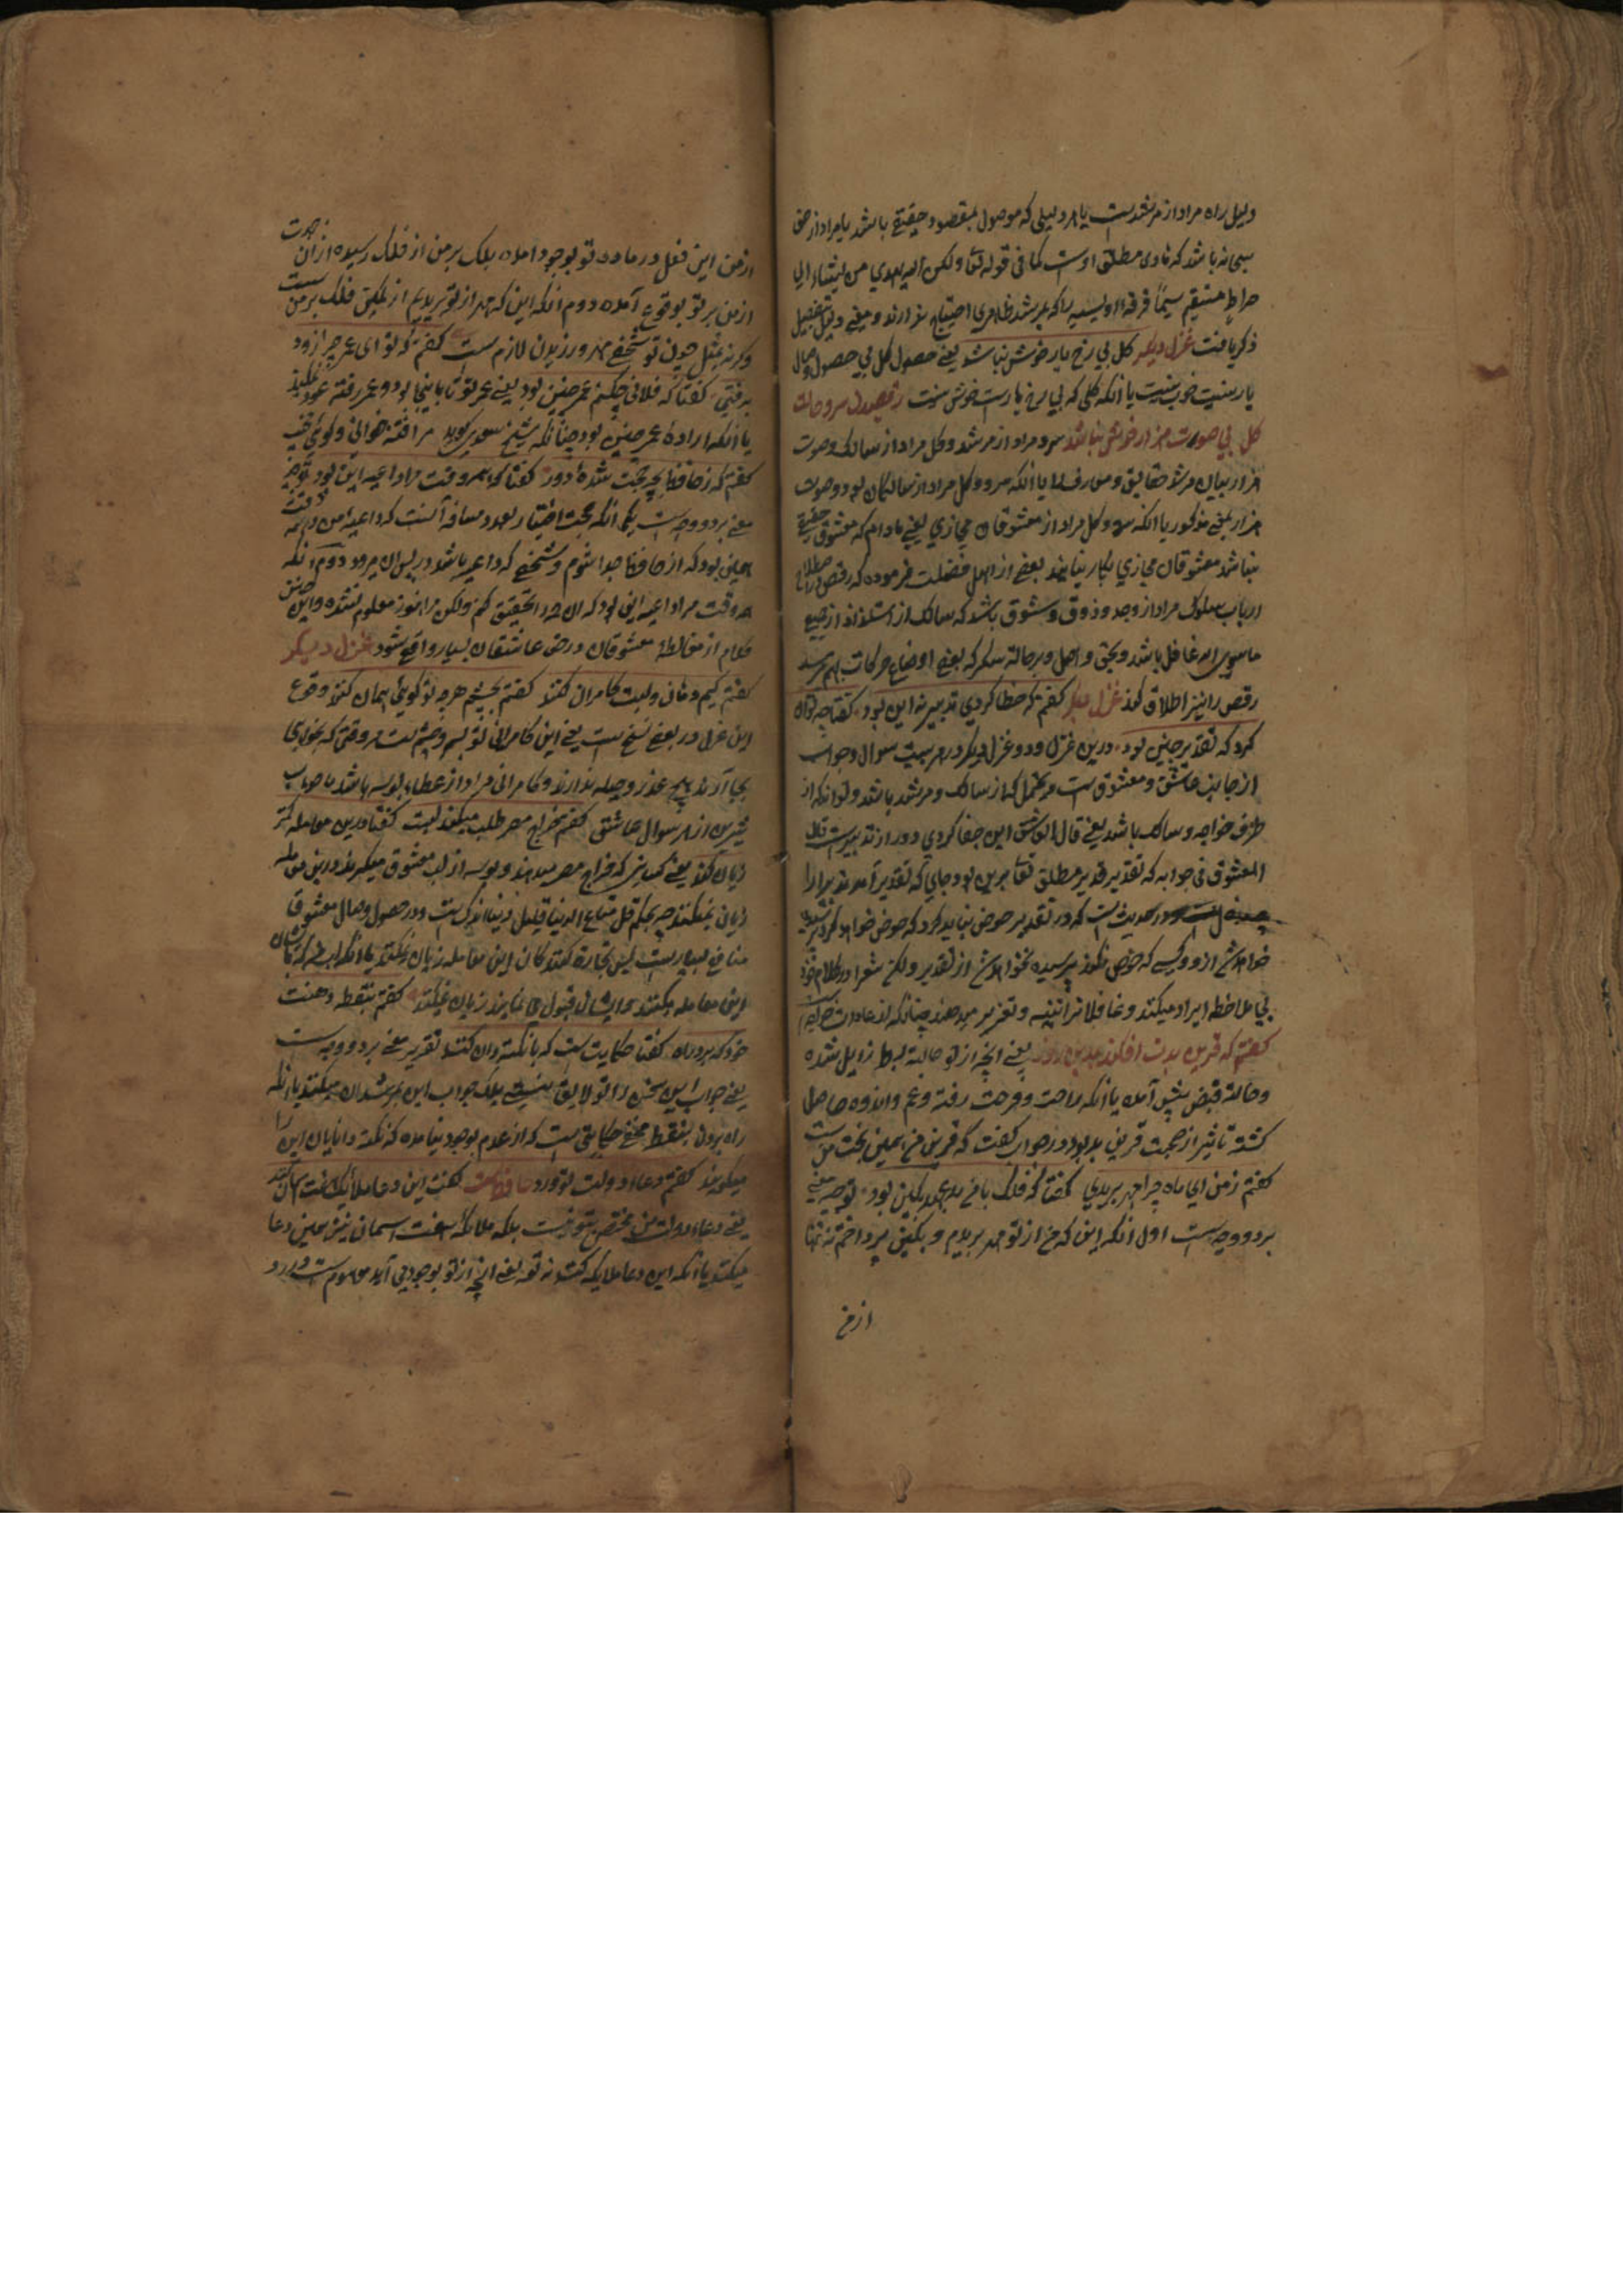 دلیل راه مراد از مرشدست یا هر دلیلی که موصول بمقصود حقیقی باشد یا مراد از حق
سبحانه باشد که هادی مطلق اوست کما فی قوله تعا ولکن الله یهدی من یشاء الی
صراط مستقیم سیما فرقهٔ اویسیه را که بمرشد ظاهری احتیاج ندارند و معنی دلیل بتفصیل
ذکر یافت غزل دیگر کل بی رخ یار خوش نباشد یعنی حصول کل بی حصول وصال
یار نیست خوب نیست یا انکه کلی که بی رخ یارست خوش نیست رقصیدن سرو حالت
کل بی صوت هزار خوش نباشد سرو مراد از مرشد و کل مراد از سالک و صوت
هزار بیان مرشد حقایق و معارف را یا انکه سرو و کل مراد از سالکان بود و صوت
هزار بمعنی مذکور یا انکه سرو و کل مراد از معشوقان مجازی یعنی مادام که معشوق حقیقی
نباشد معشوقان مجازی بکار نیایند بعضی از اهل فضلت فرموده که رقص در اصطلاح
ارباب سلوک مراد از وجد و ذوق و شوق باشد که سالک از استلذاذ از جمیع
ماسوی الله غافل باشد و بحق واصل و بر حالة سکر که بعضی اوضاع حرکات بهم رسد
رقص را نیز اطلاق کند غزل دیگر کفتم که خطا کردی تدبیر نه این بود کفتا چه توان
کرد که تقدیر چنین بود درین غزل و دو غزل دیگر در هر بیت سوال و جواب
از جانب عاشق و معشوق ست و محتمل که از سالک و مرشد باشد و تواند که از
طرف خواجه و سالک باشد یعنی قال العاشق این جفا کردی دور از تدبیرست قال
المعشوق فی جوابه که تقدیر قدیر مطلق تعا برین بود جای که تقدیر آمد تدبیر را
در حدیث ست که در تقدیر حوض نباید کرد که حوض خواهد کرد پرسیده
خواهد شد ازو و کسی که خوض نکند پرسیده نخواهد شد از تقدیر ولکن شعرا در کلام خود
بی ملاحظه ایراد میکنند و غافلانرا تنبیه و تعزیر میدهند چنانکه از عادات خواجه است
کفتم که قرین بدت افکند بدین روز یعنی انچه از تو حالة بسط زایل شده
و حالة قبض پیش آمده یا انکه راحت و فرحت رفته و غم و اندوه حاصل
کشته تاثیر از صحبت قرین بد بود در جواب کفت که قرین من همین بخت من ست
کفتم ز من ای ماه چرا مهر بریدی کفتا که فلک با من بد مهر بکین بود توجیه معنی
بر دو وجه ست اول انکه این که من از تو مهر بریدم و بکین پرداختم نه تنها
از من
از من این فعل در ماده تو بوجود امده بلک بر من از فلک رسیده ازان جهت
از من بر تو بوقوع آمده دوم انکه این که مهر از تو بریدم از بکین فلک بر من ست
و کرنه بمثل چون تو شخصی مهر ورزیدن لازم ست کفتم که تو ای عمر چرا زود
برفتی کفتا که فلانی چکنم عمر چنین بود یعنی عمر تو تا باینجا بود و عمر رفته عود نمیکند
یا انکه اراده عمر چنین بود چنانکه شیخ سعدی کوید
کفتم که ز حافظ بچه حجت شدهٔ دور کفتا که همه وقت مرا داعیه این بود توجیه
معنی بر دو وجه ست یکی انکه حجت اختیار بعد و مسافه آنست که داعیه من در همه وقت
همین بود که از حافظ جدا شوم و شخصی که داعیه باشد در پس ان میرود دوم انکه
همه وقت مرا داعیه این بود که ان را تحقیق کنم ولکن مرا هنوز معلوم نشده و این چنین
کلام از مغالطه معشوقان در حق عاشقان بسیار واقع شود غزل دیکر
کفتم کیم دهان و لبت کامران کنند کفتم بچشم هرچه تو کوئی همان کنند وقوع
این غزل در بعضی نسخ ست یعنی این کامرانی تو بسر و چشم ست هر وقتی که بخواهی
بجا آرند هیچ عذر و حیله ندارند و کامرانی مراد از عطاء بوسه باشد یا جواب
شیرین از هر سوال عاشق کفتم خراج مصر طلب میکند لبت کفتا درین معامله کمتر
زیان کنند یعنی کسانی که خراج مصر میدهند و بوسه از لب معشوق میکیرند درین معامله
زیان نمیکنند چه بحکم قل متاع الدنیا قلیل دنیا اندک ست و در حصول وصال معشوق
منافع بسیارست
این معامله میکنند و ایشان قبول می نمایند زیان نمیکنند کفتم بنقطه دهنت
خود که برد راه کفتا حکایتیست که با نکته دان کنند تقریر معنی بر دو وجه ست
یعنی جواب این سخن را تو لایق نیستی بلک جواب این بمرشدان میکنند یا انکه
راه بردن بنقطه مخفی حکایتی ست که از عدم بوجود نیامده که نکته دانایان این را
میکویند کفتم دعاء دولت تو ورد حافظ است کفت این دعا ملائک هفت آسمان کنند
یعنی دعاء دولت من مختص بتو نیست بلکه ملائکه هفت اسمان نیز همین دعا
میکنند یا انکه این دعا ملایکه کنند نه تو یعنی انچه از تو بوجود می آید موهوم ست و ورد